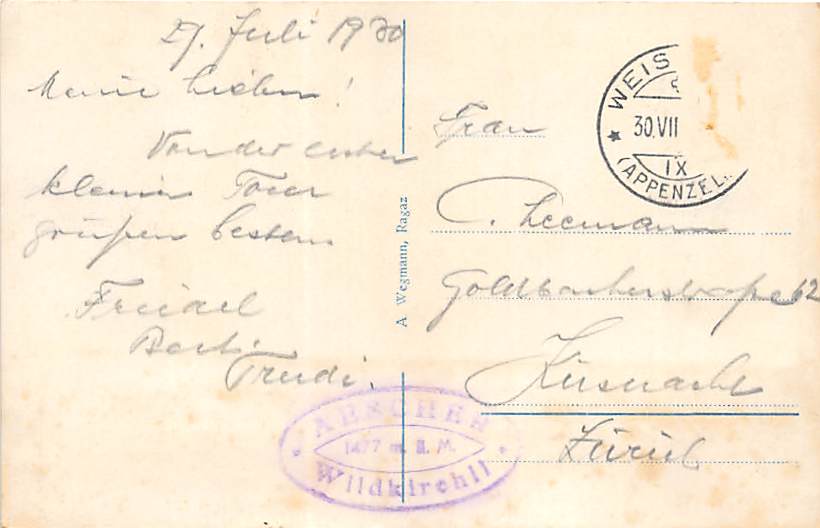 29. Juli 1930
Meine Lieben!
Von der ersten
kleinen Tour
grüßen bestens
Friedel
Berti
Trudi.
A. Wegmann, Ragaz
WEIS
30.VII
IX
(APPENZEL
Frau
C. Leemann
Goldbacherstraße 62
Küsnacht
Zürich
AESCHER
1477 m. ü. M.
Wildkirchli